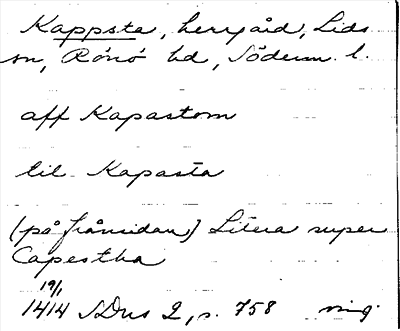 Kappsta, herrgård, Lids
sn, Rönö hd, Söderm. l.
aff Kapastom
til Kapasta
(på frånsidan) Litera super
Capestha
19/1
1414 SDns 2, s. 758 orig.